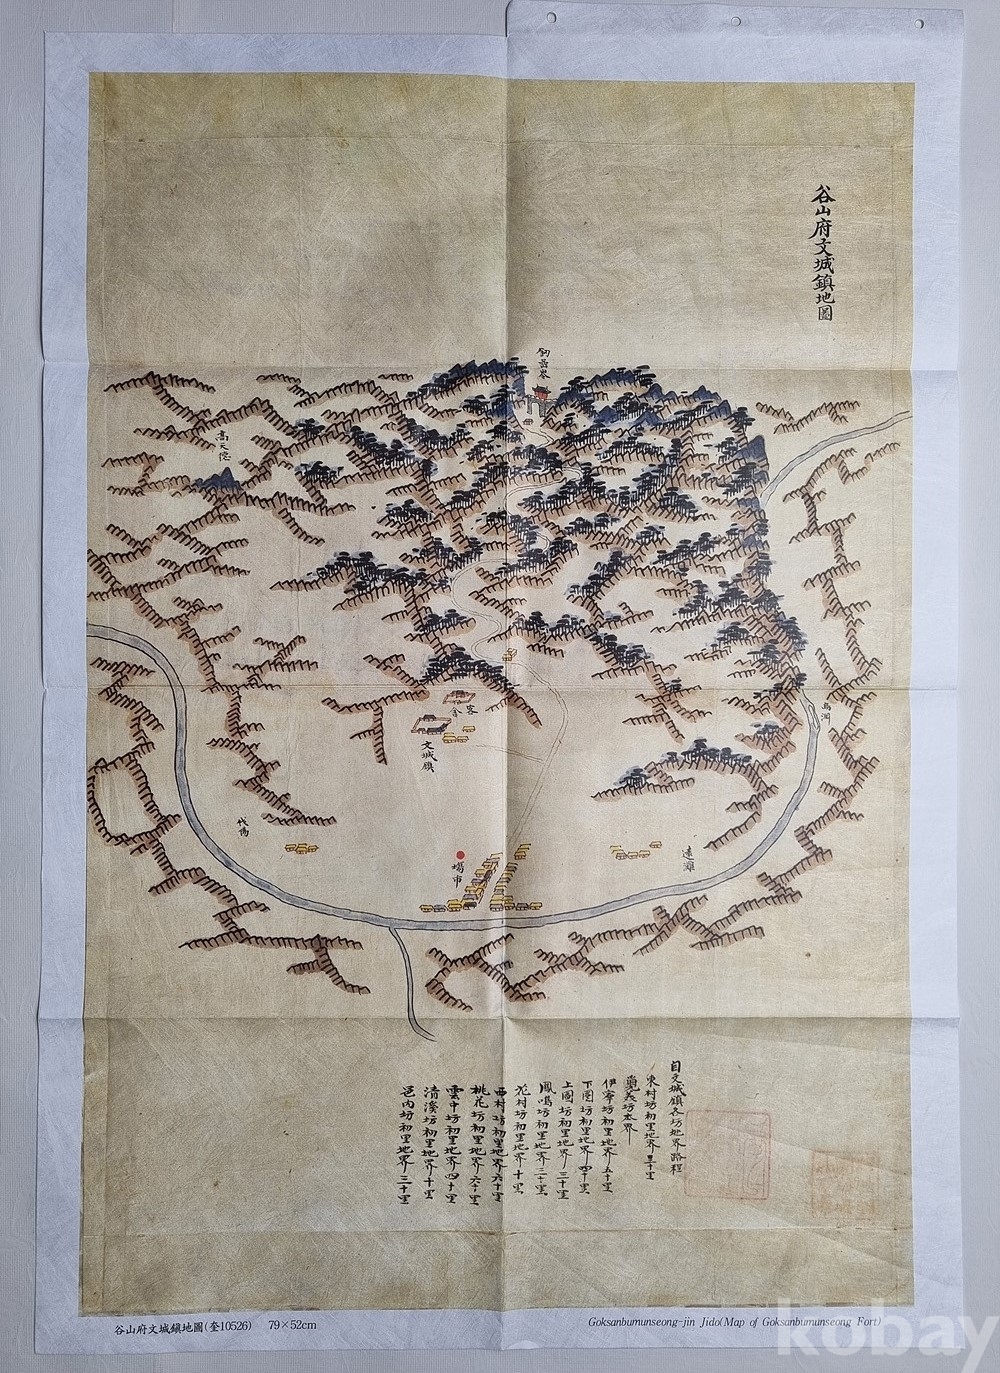 谷山府文城鎭地圖
劒岳峯
高天德
馬渊
客舍
文城鎭
場市
遠灘
自文城鎭各坊地界路程
東村坊初里地界三十里
覓美坊本界
伊寧坊初里地界五十里
下圖坊初里地界四十里
上圖坊初里地界三十里
鳳鳴坊初里地界二十里
花村坊初里地界十里
西村坊初里地界六十里
桃花坊初里地界六十里
雲中坊初里地界四十里
清溪坊初里地界十里
邑內坊初里地界三十里
谷山府文城鎭地圖(奎10526) 79×52cm
Goksanbumunseong-jin Jido(Map of Goksanbumunseong Fort)
kobay